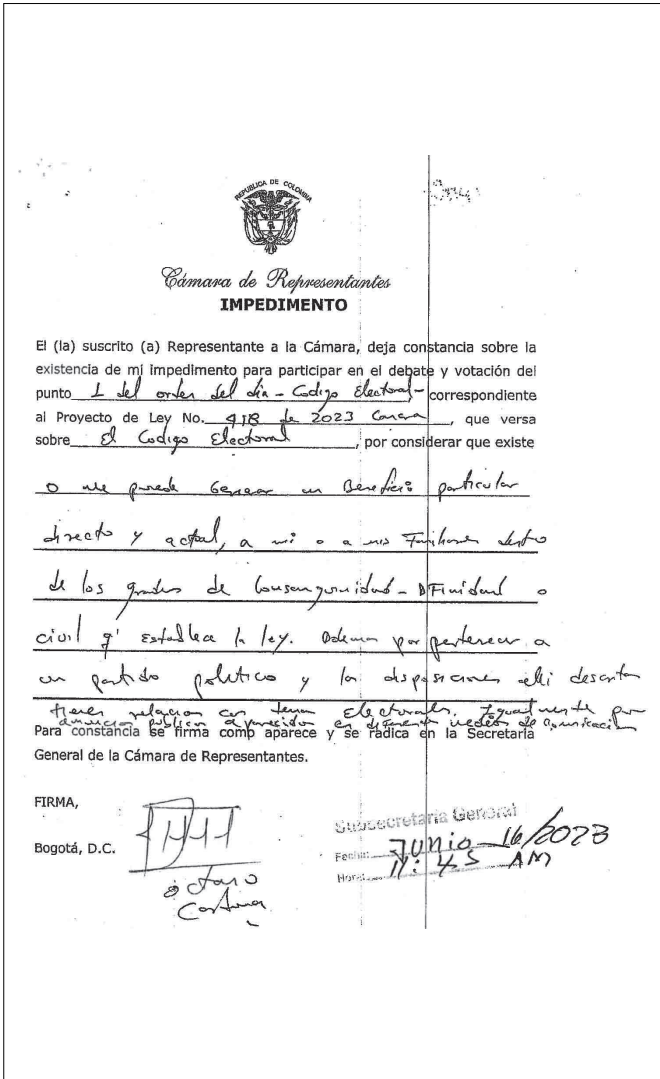 REPUBLICA DE COLOMBIA
Cámara de Representantes
IMPEDIMENTO
El (la) suscrito (a) Representante a la Cámara, deja constancia sobre la
existencia de mi impedimento para participar en el debate y votación del
punto 1 del orden del día - Codigo Electoral - correspondiente
al Proyecto de Ley No. 418 de 2023 Camara, que versa
sobre El Codigo Electoral, por considerar que existe
o me puede Generar un Beneficio particular
directo y actual, a mi o a mis Familiares dentro
de los grados de Consanguinidad - AFinidad o
civil q' Establece la ley. Ademas por pertenecer a
un partido politico y las disposiciones alli descritas
tienen relacion con temas Electorales. Igualmente por
anuncios publicos aparecidos en diferentes medios de Comunicación
Para constancia se firma como aparece y se radica en la Secretaria
General de la Cámara de Representantes.
FIRMA,
Bogotá, D.C.
Octavio
Cardona
Subsecretaria General
Fecha: Junio 16/2023
Hora: 11:45 AM